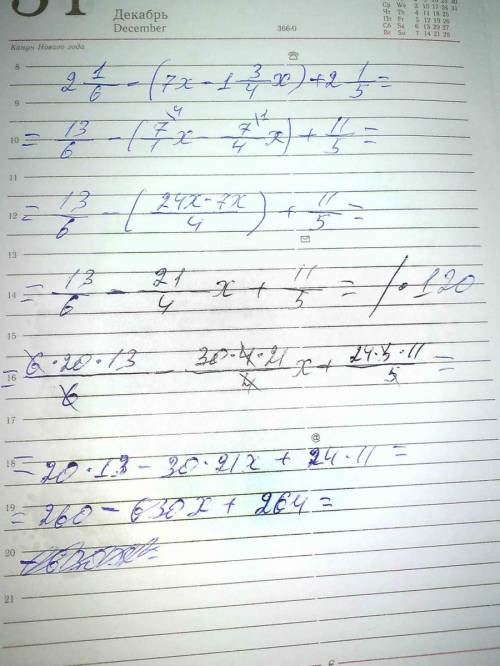 Декабрь
December
366-0
Канун Нового года
8
2 1/6 - (7x - 1 3/4 x) + 2 1/5 =
9
10
= 13/6 - (7/1 \4 x - 7/4 \1 x) + 11/5 =
11
12
= 13/6 - (24x - 7x / 4) + 11/5 =
13
14
= 13/6 - 21/4 x + 11/5 = / • 120
15
16
= 6 • 20 • 13 / 6 - 30 • 4 • 21 / 4 x + 24 • 5 • 11 / 5 =
17
18
= 20 • 13 - 30 • 21x + 24 • 11 =
19
= 260 - 630x + 264 =
20
21